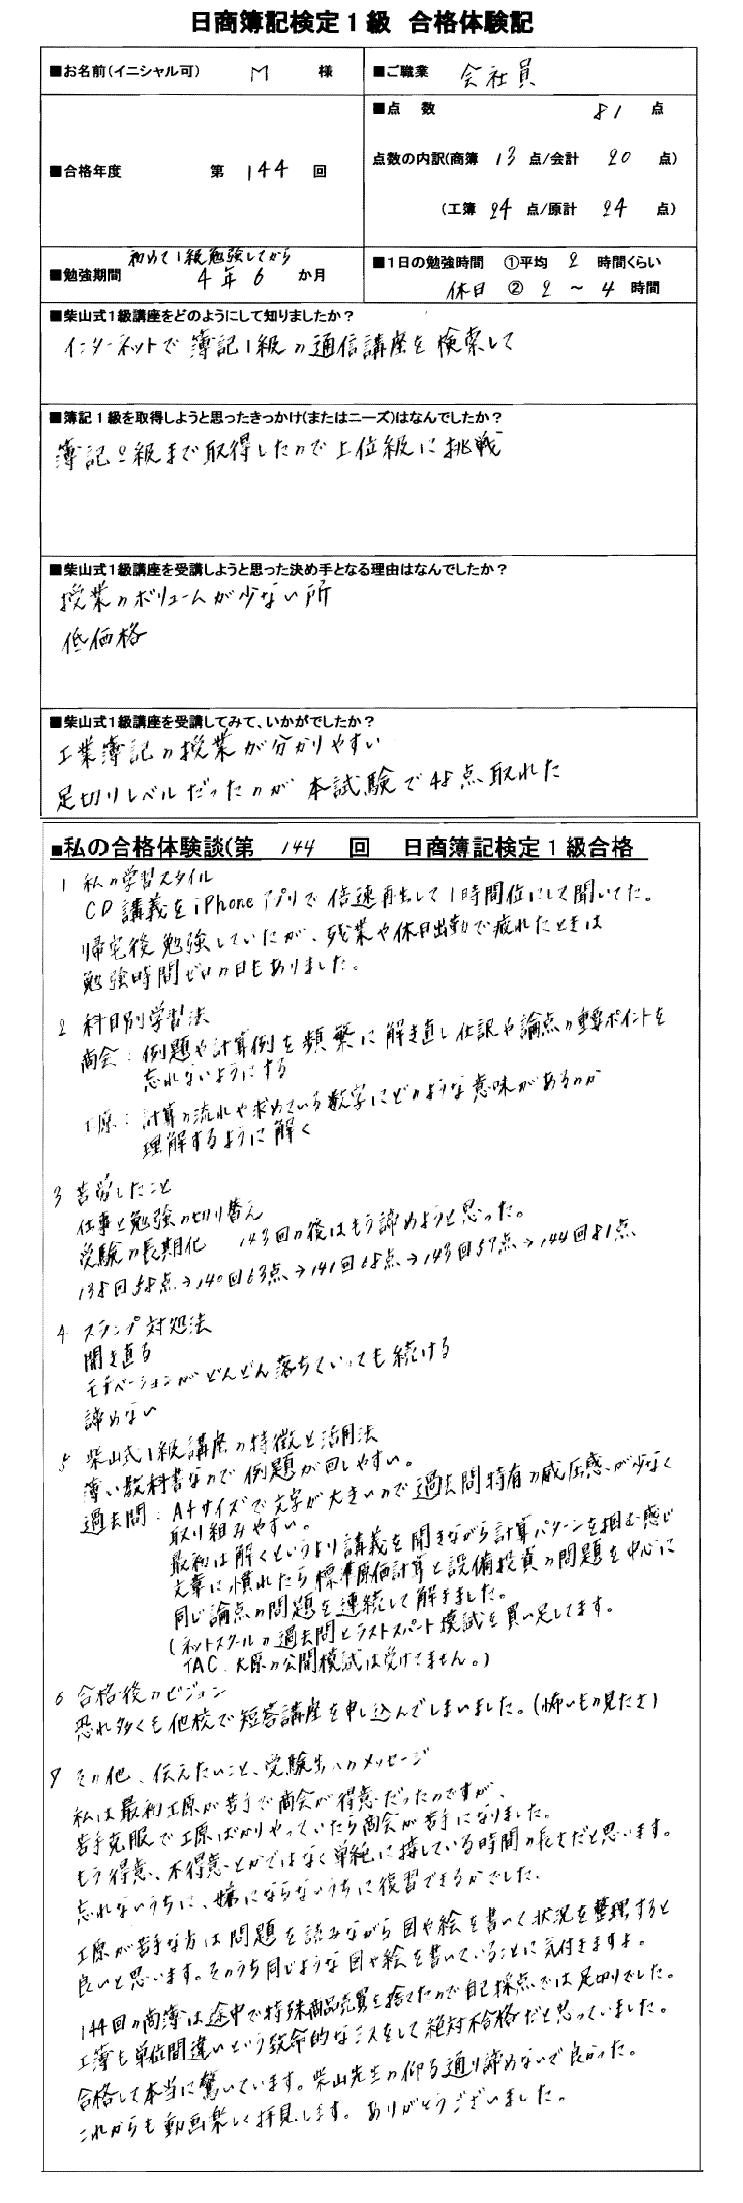 日商簿記検定1級 合格体験記
■お名前(イニシャル可) M 様
■ご職業 会社員
■合格年度 第 144 回
■点数 81 点
点数の内訳(商簿 13 点/会計 20 点)
(工簿 24 点/原計 24 点)
■勉強期間 初めて1級勉強してから 4年6 か月
■1日の勉強時間 ①平均 2 時間くらい
休日 ② 2 ~ 4 時間
■柴山式1級講座をどのようにして知りましたか?
インターネットで簿記1級の通信講座を検索して
■簿記1級を取得しようと思ったきっかけ(またはニーズ)はなんでしたか?
簿記2級まで取得したので上位級に挑戦
■柴山式1級講座を受講しようと思った決め手となる理由はなんでしたか?
授業のボリュームが少ない所
低価格
■柴山式1級講座を受講してみて、いかがでしたか?
工業簿記の授業が分かりやすい
足切りレベルだったのが本試験で48点取れた
■私の合格体験談(第 144 回 日商簿記検定1級合格
1 私の学習スタイル
CD講義をiPhoneアプリで倍速再生して1時間位にして聞いてた。
帰宅後勉強していたが、残業や休日出勤で疲れたときは
勉強時間ゼロの日もありました。
2 科目別学習法
商会:例題や計算例を頻繁に解き直し仕訳や論点の重要ポイントを
忘れないようにする
工原:計算の流れや求めている数字にどのような意味があるのか
理解するように解く
3 苦労したこと
仕事と勉強の切り替え
受験の長期化 143回の後はもう諦めようと思った。
138回58点→140回63点→141回68点→143回57点→144回81点
4 スランプ対処法
開き直る
モチベーションがどんどん落ちていっても続ける
諦めない
5 柴山式1級講座の特徴と活用法
薄い教科書なので例題が回しやすい。
過去問:A4サイズで文字が大きいので過去問特有の威圧感が少なく
取り組みやすい。
最初は解くというより講義を聞きながら計算パターンを掴む感じ
文章に慣れたら標準原価計算と設備投資の問題を中心に
同じ論点の問題を連続して解きました。
(ネットスクールの過去問とラストスパート模試を買い足してます。
TAC、大原の公開模試は受けてません。)
6 合格後のビジョン
恐れ多くも他校で短答講座を申し込んでしまいました。(怖いもの見たさ)
7 その他、伝えたいこと、受験生へのメッセージ
私は最初工原が苦手で商会が得意だったのですが、
苦手克服で工原ばかりやっていたら商会が苦手になりました。
もう得意、不得意とかではなく単純に接している時間の長さだと思います。
忘れないうちに、嫌にならないうちに復習できるかでした。
工原が苦手な方は問題を読みながら図や絵を書いて状況を整理すると
良いと思います。そのうち同じような図や絵を書いていることに気付きますよ。
144回の商簿は途中で特殊商品売買を捨てたので自己採点では足切りでした。
工簿も単位間違いという致命的なミスをして絶対不合格だと思っていました。
合格して本当に驚いています。柴山先生の仰る通り諦めないで良かった。
これからも動画楽しく拝見します。ありがとうございました。